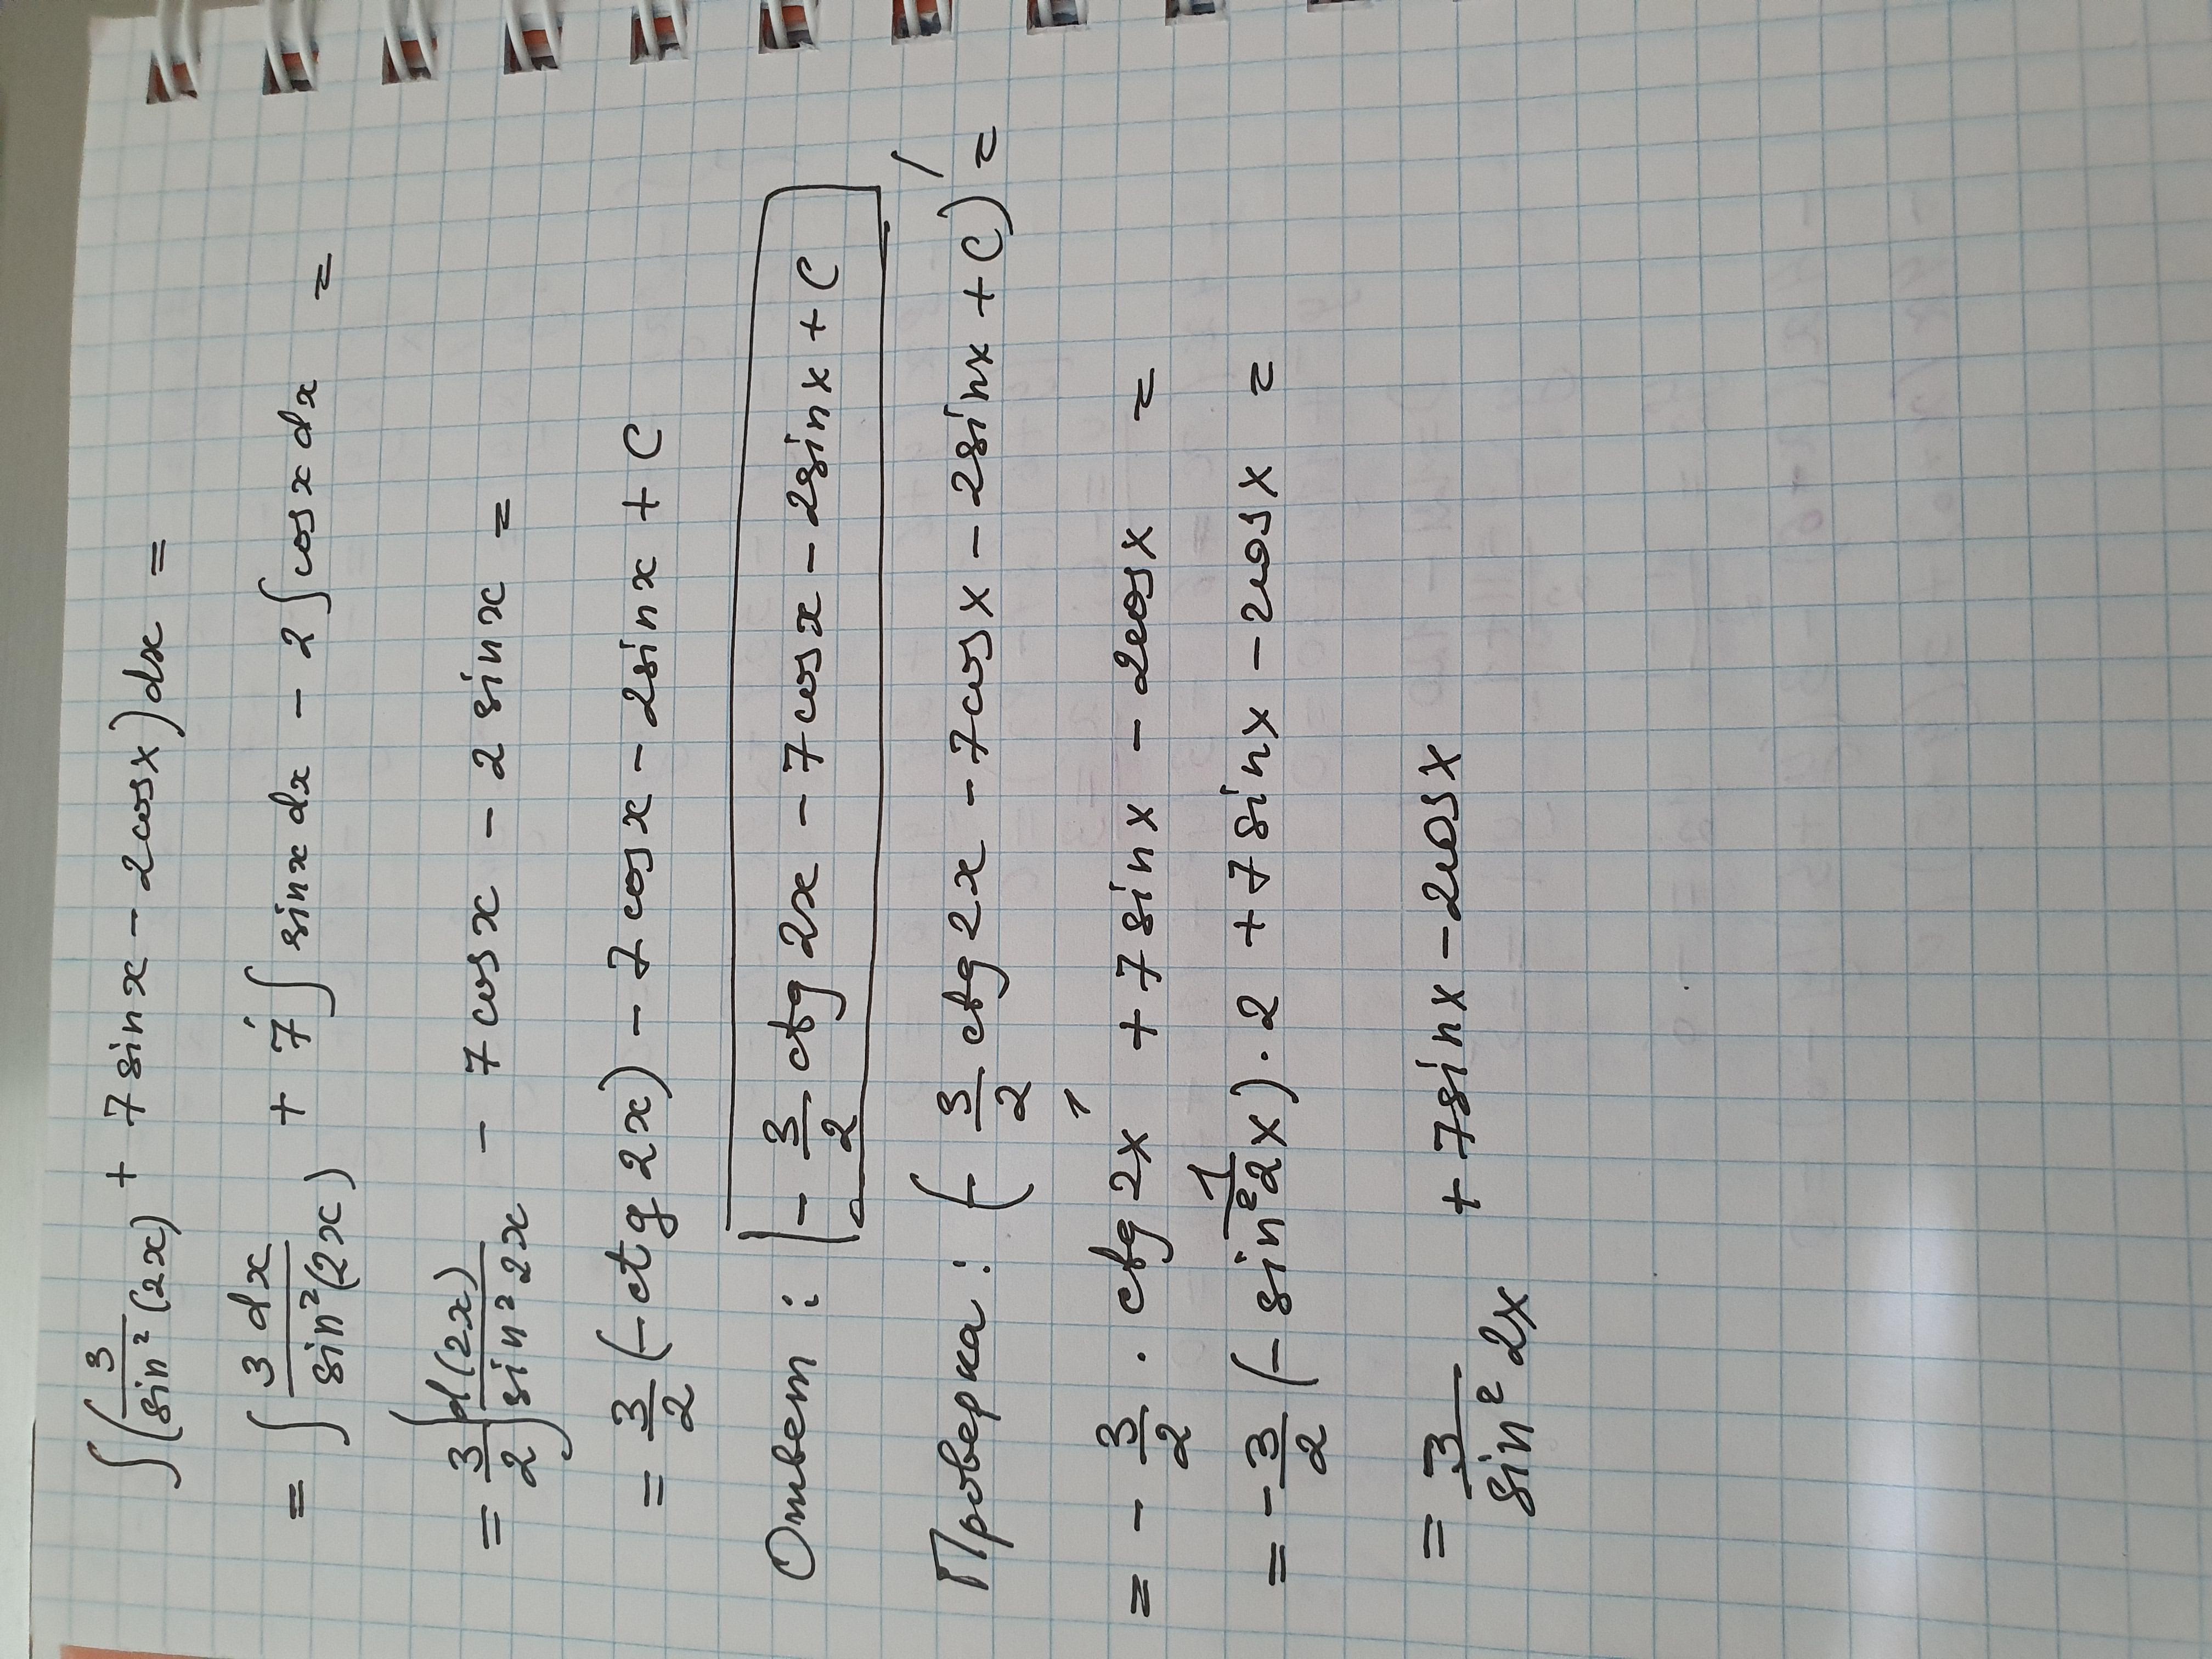 ∫(3/sin²(2x) + 7sinx − 2cosx)dx =
= ∫ 3dx/sin²(2x) + 7∫sinxdx − 2∫cosxdx =
= 3/2 ∫ d(2x)/sin²2x − 7cosx − 2sinx =
= 3/2 (−ctg2x) − 7cosx − 2sinx + C
Ответ: −3/2 ctg2x − 7cosx − 2sinx + C
Проверка: (−3/2 ctg2x − 7cosx − 2sinx + C)′ =
= −3/2 · ctg2x′ + 7sinx − 2cosx =
= −3/2 (−1/sin²2x) · 2 + 7sinx − 2cosx =
= 3/sin²2x + 7sinx − 2cosx